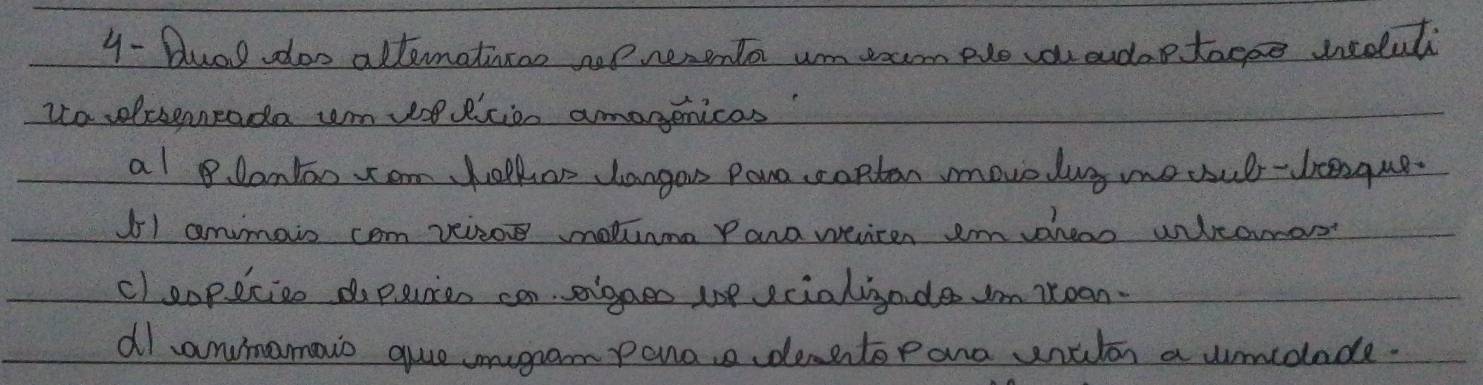 4- Qual das alternativas representa um exemplo de adaptação evoluti
va observada em espécies amazônicas
a) Plantas com folhas largas para captar mais luz no sub-bosque.
b) animais com veizão noturna para viver em áreas urbanas.
c) espécies de peixes con. orgãos especializados em voar.
d) animamais que migram para o deserto para evitar a umidade.